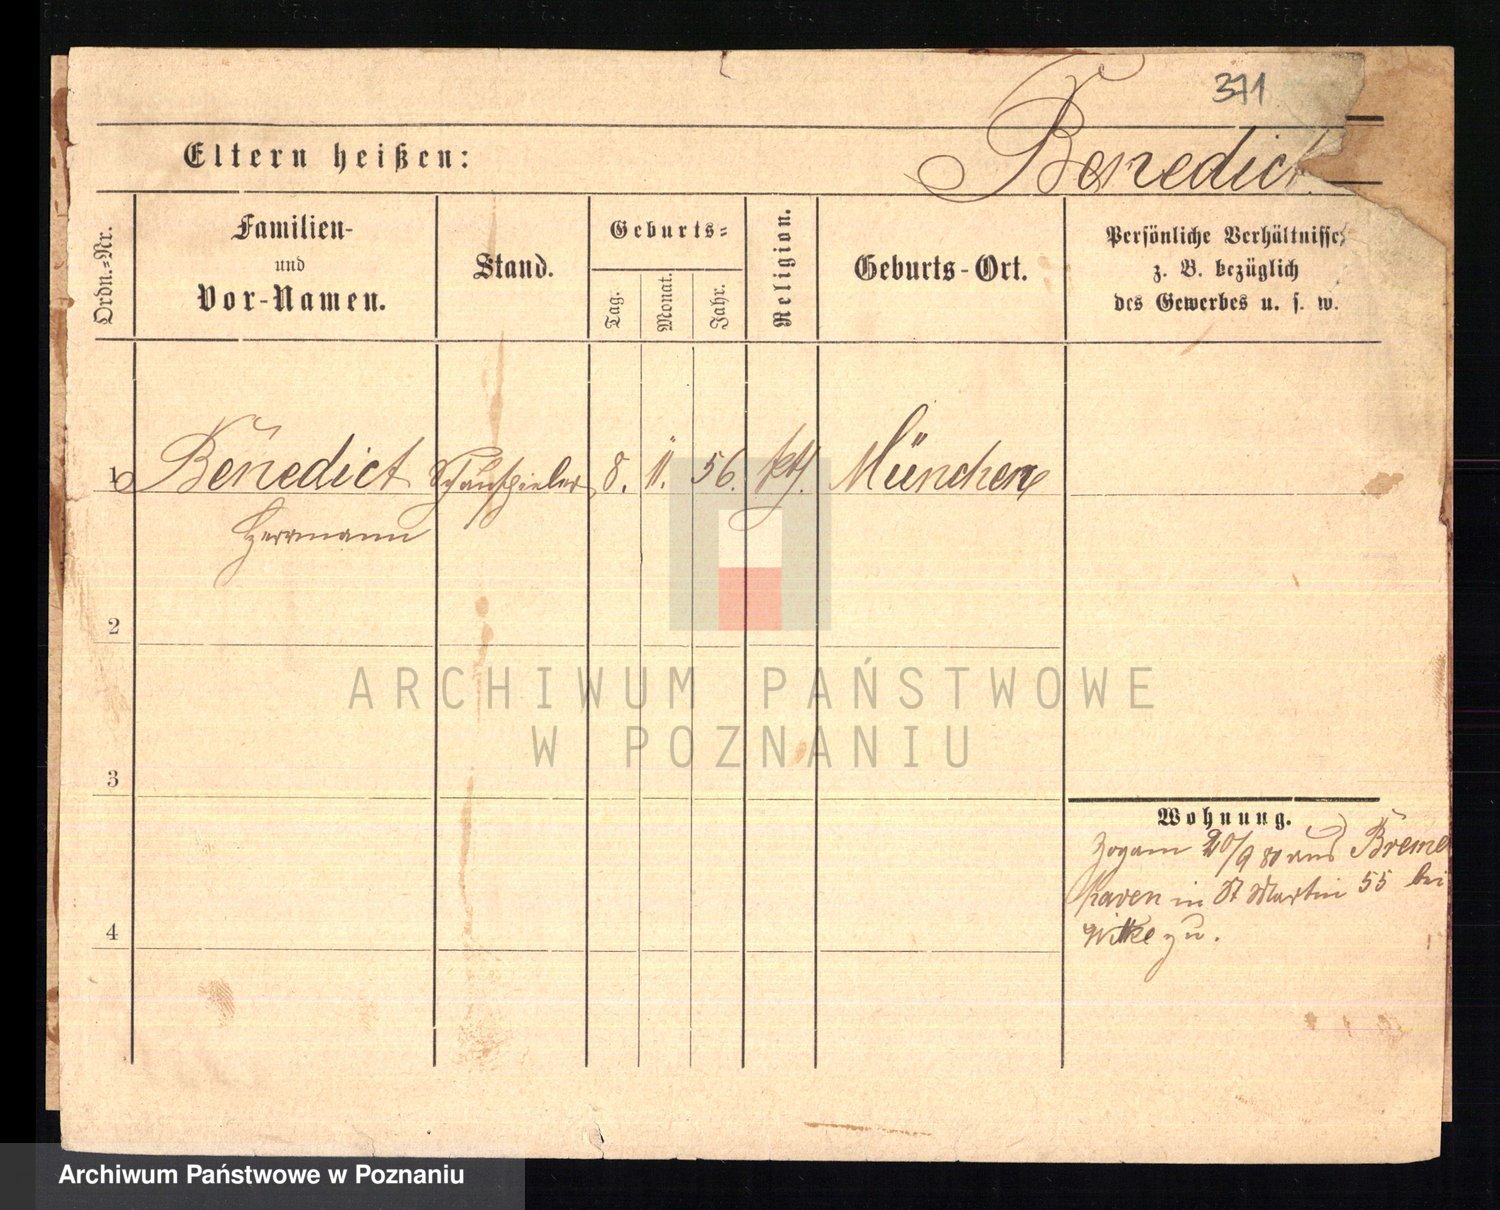 371
Benedict
Eltern heißen:
Ordn.=Nr.
Familien-
und
Vor-Namen.
Stand.
Geburts=
Tag.
Monat.
Jahr.
Religion.
Geburts-Ort.
Persönliche Verhältnisse
z. B. bezüglich
des Gewerbes u. s. w.
1 Benedict Schauspieler 8. 11. 56. kth. München
Herrmann
2
3
4
Wohnung.
Zog am 20/9 80 aus Breme
haven in St Martin 55 bei
Witke zu.
ARCHIWUM PAŃSTWOWE
W POZNANIU
Archiwum Państwowe w Poznaniu